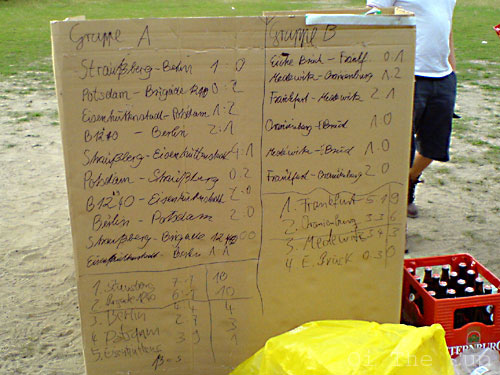 Gruppe A
Straußberg - Berlin 1:0
Potsdam - Brigade 1240 0:2
Eisenhüttenstadt - Potsdam 1:2
B1240 - Berlin 2:1
Straußberg - Eisenhüttenstadt 4:1
Potsdam - Straußburg 0:2
B1240 - Eisenhüttenstadt 2:0
Berlin - Potsdam 2:0
Straußberg - Brigade 1240 0:0
Eisenhüttenstadt - Berlin 1:1
1. Strausberg 10
2. Brigade 1240 10
3. Berlin 4
4. Potsdam 3
5. Eisenhüttens 1
Gruppe B
Eiche Brück - Frankf. 0:1
Medewitz - Oranienburg 1:2
Frankfurt - Medewitz 2:1
Oranienburg - Brück 1:0
Medewitz - Brück 1:0
Frankfurt - Oranienburg 2:0
1. Frankfurt 5:1 9
2. Oranienburg 3:3 6
3. Medewitz 3:4 3
4. E. Brück 0:3 0
TERNBURG
Of The Sun